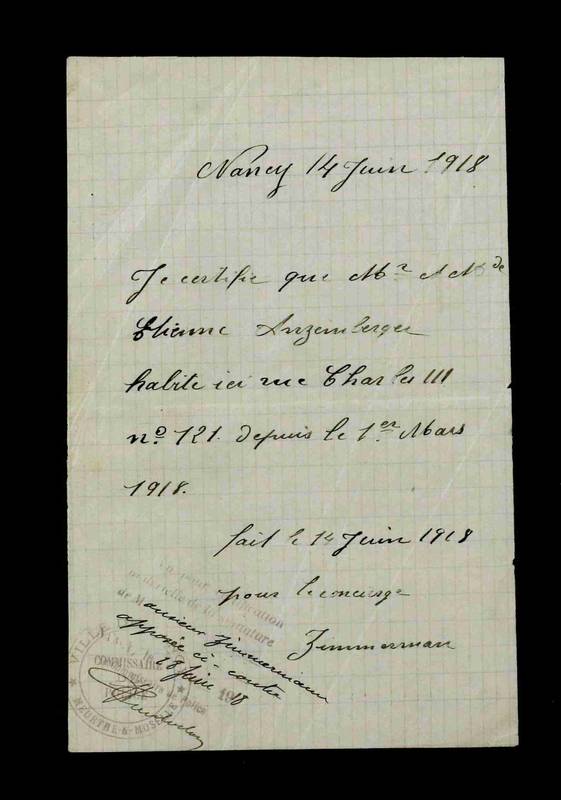 Nancy 14 Juin 1918
Je certifie que Mr & Mde
Etienne Anzemberger
habite ici rue Charles III
no. 121. depuis le 1er Mars
1918.
fait le 14 Juin 1918
pour le concierge
Zimmerman
pour
matérielle de la signature
de M
monsieur Zimmermann
apposée ci-contre
18 Juin 1918
VILLE
COMMISSAIRE
de Police
MEURTHE-&-MOSELLE